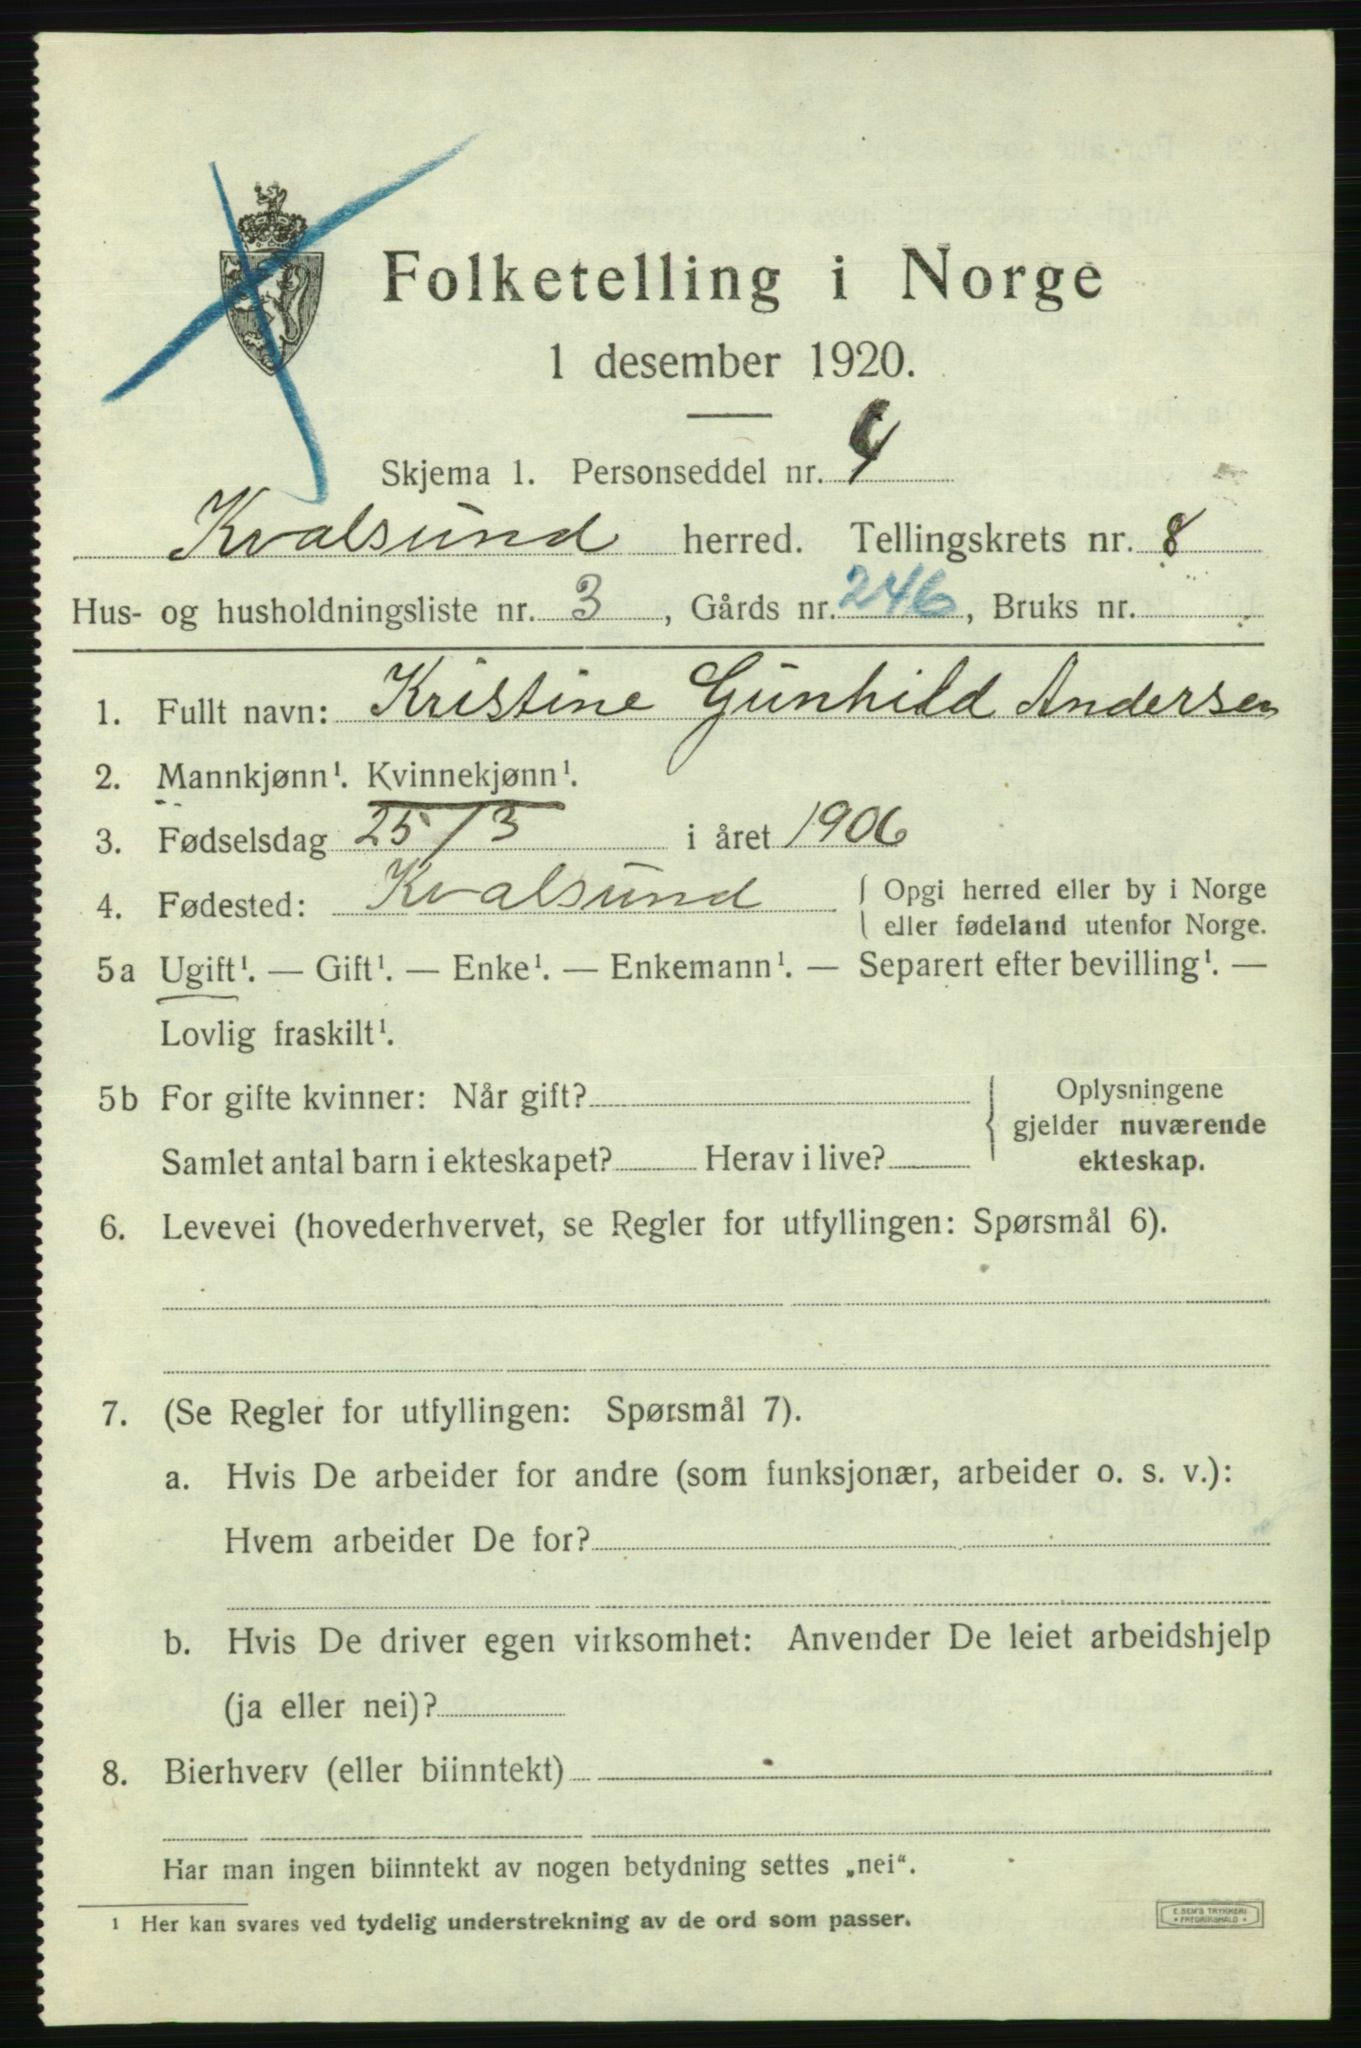 Folketelling i Norge
1 desember 1920.
Skjema 1. Personseddel nr. 4
Kvalsund herred. Tellingskrets nr. 8
Hus- og husholdningsliste nr. 3, Gårds nr. 246, Bruks nr.
1. Fullt navn: Kristine Gunhild Andersen
2. Mannkjønn¹. Kvinnekjønn¹.
3. Fødselsdag 25/3 i året 1906
4. Fødested: Kvalsund { Opgi herred eller by i Norge
eller fødeland utenfor Norge.
5a Ugift¹. — Gift¹. — Enke¹. — Enkemann¹. — Separert efter bevilling¹. —
Lovlig fraskilt¹.
5b For gifte kvinner: Når gift? { Oplysningene
gjelder nuværende
Samlet antal barn i ekteskapet? Herav i live? ekteskap.
6. Levevei (hovederhvervet, se Regler for utfyllingen: Spørsmål 6).
7. (Se Regler for utfyllingen: Spørsmål 7).
a. Hvis De arbeider for andre (som funksjonær, arbeider o. s. v.):
Hvem arbeider De for?
b. Hvis De driver egen virksomhet: Anvender De leiet arbeidshjelp
(ja eller nei)?
8. Bierhverv (eller biinntekt)
Har man ingen biinntekt av nogen betydning settes „nei“.
¹ Her kan svares ved tydelig understrekning av de ord som passer.
E. SEM'S TRYKKERI
FREDRIKSHALD